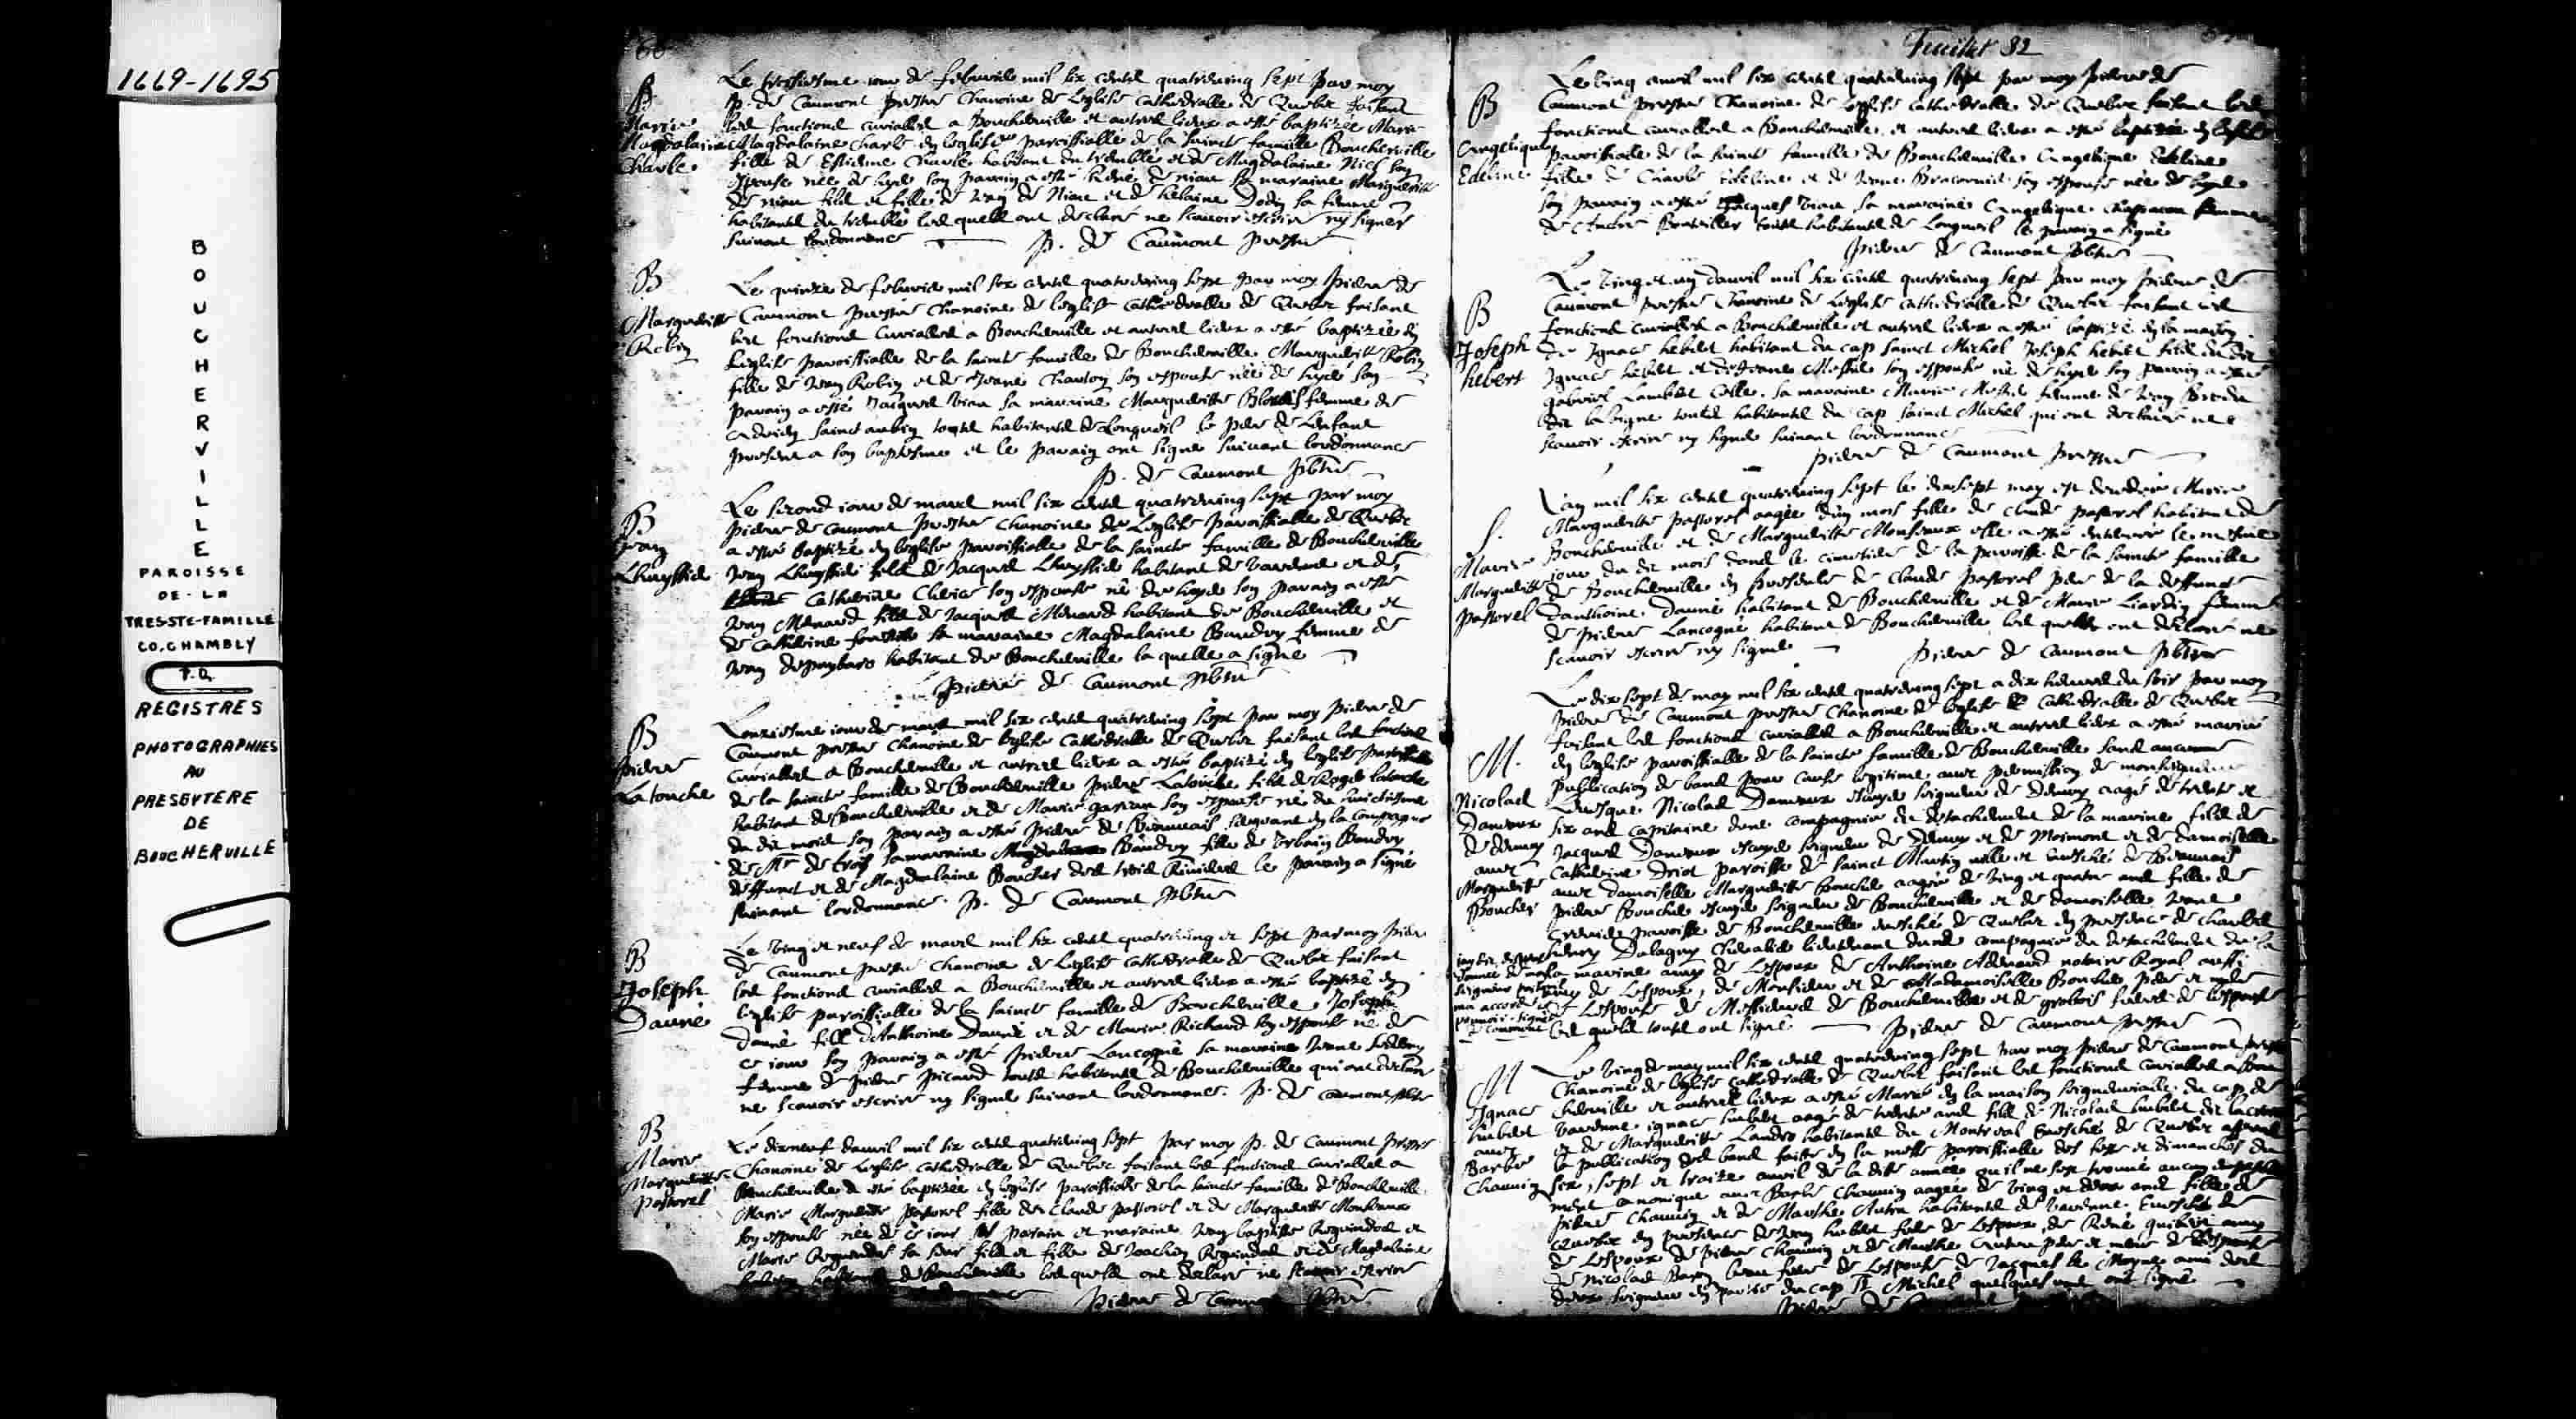 1669-1695
BOUCHERVILLE
PAROISSE
DE LA
TRES-STE-FAMILLE
CO. CHAMBLY
P.Q.
REGISTRES
PHOTOGRAPHIES
AU
PRESBYTERE
DE
BOUCHERVILLE
B
Marie
Magdalaine
Charle
Le troisiesme iour de febvrier mil six cents quatreving sept par moy
p. de Caumont prestre Chanoine de Leglise cathedralle de Quebec faisant
les fonctions curialles a Boucherville et autres lieux a esté baptizée Marie
Magdalaine Charle en leglise paroissialle de la saincte famille Boucherville
fille de Estienne Charle habitant du tremblé et de Magdalaine Niel son
espouse née de hyer son parain a esté René de niau sa maraine Marguerite
de niau fils et fille de Jean de Niau et de helaine Dodin sa femme
habitants du tremblé les quels ont declaré ne scavoir escrire ny signer
suivant lordonnance p. de Caumont prestre
B
Marguerite
Robin
Le quinze de febvrier mil six cents quatreving sept par moy pierre de
Caumont prestre Chanoine de leglise cathedralle de Quebec faisant
les fonctions curialles a Boucherville et autres lieux a esté baptizée en
leglise paroissialle de la saincte famille de Boucherville Marguerite Robin
fille de Jean Robin et de Jeane Charton son espouse née de hyer son
parain a esté Jacques Viau sa maraine Marguerite femme de
sainct aubin touts habitants de Longueil le pere de Lenfant
present a son baptesme et le parain ont signe suivant lordonnance
p. de Caumont pbtre
B
Jean
Lhuyssie
Le second iour de mars mil six cents quatreving sept par moy
pierre de caumont prestre chanoine de Leglise paroissialle de Quebec
a esté baptizé en leglise paroissialle de la saincte famille de Boucherville
Jean Lhuyssie fils de Jacques Lhuyssie habitant de Varenne et de
Catherine Clerice son espouse né de hyer son parain a esté
Jean Menard fils de Jacques Menard habitant de Boucherville et
de Catherine sa maraine Magdalaine Baudry femme de
Jean habitant de Boucherville la quelle a signe
pierre de Caumont pbtre
B
pierre
Latouche
Lonziesme iour de mars mil six cents quatreving sept par moy pierre de
Caumont prestre chanoine de leglise cathedralle de Quebec faisant les fonctions
curialles a Boucherville et autres lieux a esté baptizé en leglise paroissialle
de la saincte famille de Boucherville pierre Latouche fils de Roger Latouche
habitant de Boucherville et de Marie gareau son espouse né du huictiesme
du dit mois son parain a esté pierre de Beauvais sergeant en la Compagnie
de Mr de Troy sa maraine Baudry fille de Vrbain Baudry
deffunct et de Magdalaine Boucher des trois Rivieres le parain a signé
suivant lordonnance. p. de Caumont pbtre
B
Joseph
Dauné
Le ving et neuf de mars mil six cents quatreving et sept par moy pierre
de Caumont prestre chanoine de Leglise cathedralle de Quebec faisant
les fonctions curialles a Boucherville et autres lieux a esté baptizé en
leglise paroissialle de la saincte famille de Boucherville Joseph
Dauné fils d'Anthoine Dauné et de Marie Richard son espouse né de
ce iour son parain a esté pierre Lancogné sa maraine Jeane
femme de pierre picard touts habitants de Boucherville qui ont declaré
ne scavoir escrire ny signer suivant lordonnance. p. de caumont pbtre
B
Marie
Marguerite
pastorel
Le dixneuf davril mil six cents quatreving sept par moy p. de Caumont prestre
Chanoine de Leglise cathedralle de Quebec faisant les fonctions curialles a
Boucherville a esté baptizée en leglise paroissialle de la saincte famille de Boucherville
Marie Marguerite pastorel fille de Claude pastorel et de Marguerite Monseaux
son espouse née de ce iour ses parain et maraine Jean baptiste Reguindeau et
Marie Reguindeau sa seur fils et fille de Joachin Reguindeau et de Magdalaine
de Boucherville les quels ont declaré ne scavoir escrire
pierre de Caumont pbtre
Feuillet 82
B
Angelique
Edeline
Le cinq avril mil six cents quatreving sept par moy pierre de
Caumont prestre Chanoine de leglise cathedralle de Quebec faisant les
fonctions curialles a Boucherville et autres lieux a esté baptizée en leglise
paroissialle de la saincte famille de Boucherville Angelique Edeline
fille de Charle Edeline et de Jeane Braconnier son espouse née de hyer
son parain a esté Jacques Viau sa maraine Angelique femme
de Andre Bouteiller touts habitants de Longueil le parain a signé
pierre de Caumont pbtre
B
Joseph
hebert
Le ving et un davril mil six cents quatreving sept par moy pierre de
Caumont prestre Chanoine de Leglise cathedralle de Quebec faisant les
fonctions curialles a Boucherville et autres lieux a esté baptizé en la maison
de Ignace hebert habitant du cap sainct Michel Joseph hebert fils du dit
Ignace hebert et de Jeane Messié son espouse né de hyer son parain a esté
gabriel Lambert sa maraine Marie Messié femme de Jean
dit la vigne touts habitants du cap sainct Michel qui ont declaré ne
scavoir escrire ny signer suivant lordonnance
pierre de Caumont prestre
S.
Marie
Marguerite
pastorel
L'an mil six cents quatreving sept le dixsept may est decedée Marie
Marguerite pastorel aagée d'un mois fille de claude pastorel habitant de
Boucherville et de Marguerite Monseaux elle a esté enterrée le mesme
iour du dit mois dans le cimetiere de la paroisse de la saincte famille
de Boucherville en presence de Claude pastorel pere de la deffuncte
danthoine dauné habitant de Boucherville et de Marie Liardin femme
de pierre Lancogné habitant de Boucherville les quels ont declaré ne
scavoir escrire ny signer pierre de Caumont pbtre
M.
Nicolas
Daneaux
de Muy
avec
Marguerite
Boucher
Le dix sept de may mil six cents quatreving sept a dix heures du soir par moy
pierre de Caumont prestre Chanoine de leglise Cathedralle de Quebec
faisant les fonctions curialles a Boucherville et autres lieux a esté marié
en leglise paroissialle de la saincte famille de Boucherville sans aucune
publication de bans pour cause legitime avec permission de monseigneur
Levesque Nicolas Daneaux escuyer seigneur de demuy aagé de trente et
six ans capitaine d'une compagnie du detachement de la marine fils de
Jacques Daneaux escuyer seigneur de demuy et de Moimont et de damoiselle
Catherine Driot paroisse de sainct Martin ville et evesché de Beauvais
avec damoiselle Marguerite Boucher aagée de ving et quatre ans fille de
pierre Boucher escuyer seigneur de Boucherville et de damoiselle Jeane
Crevier paroisse de Boucherville evesché de Quebec en presence de Charles
henry Daloigny Chevalier lieutenant d'une compagnie du detachement de la
marine amy de Lespoux de Anthoine Adhemar notaire Royal aussi
amy de Lespoux, de Monsieur et de Mademoiselle Boucher pere et mere
de Lespouse de Messieurs de Boucherville et de grobois freres de lespouse
les quels touts ont signe pierre de Caumont prestre
M
Ignace
hubert
avec
Barbe
Chauvin
Le ving de may mil six cents quatreving sept par moy pierre de Caumont prestre
Chanoine de leglise cathedralle de Quebec faisant les fonctions curialles a Bou
cherville et autres lieux a esté Marié en la maison seigneurialle du cap de
Varenne ignace hubert aagé de trente ans fils de Nicolas hubert dit lacroix
et de Marguerite Landro habitants du Montreal Evesché de Quebec apres
la publication des bans faitte en la messe paroissialle des festes et dimanches du
six, sept et traize avril de la ditte année ou il ne sest trouvé aucun empesche
ment canonique avec Barbe Chauvin aagée de ving et deux ans fille de
pierre Chauvin et de Marthe Autru habitants de Varenne Evesché de
Quebec en presence de Jean hubert frere de Lespoux de René amy
de Lespoux de pierre Chauvin et de Marthe pere et mere de Lespouse
de Nicolas Baron beau frere de Lespouse de Jacques le Moyne ami des
deux seigneur en partie du cap St Michel quelques uns ont signé